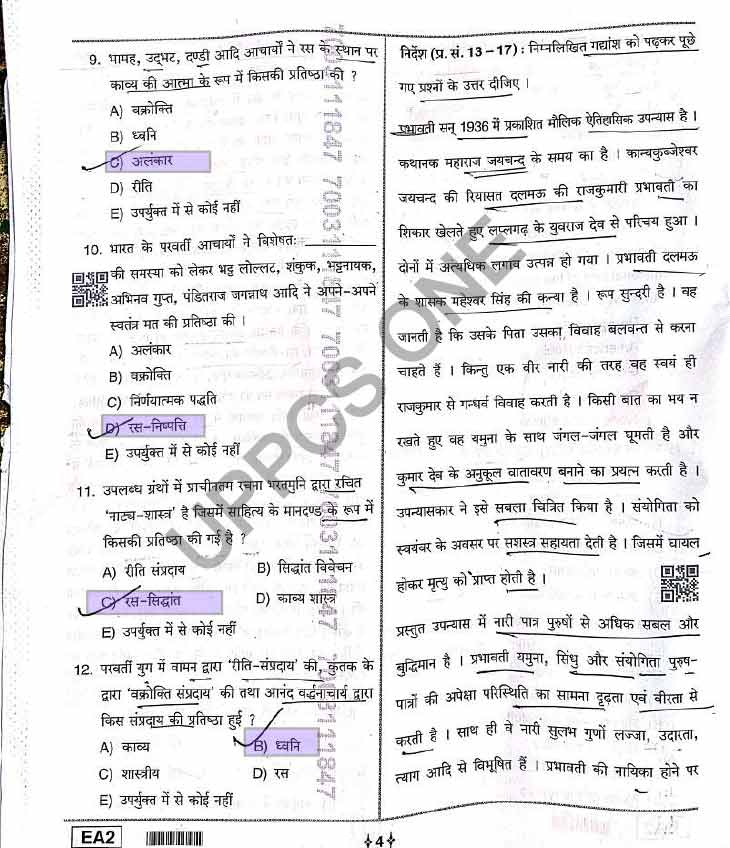 9. भामह, उद्भट, दण्डी आदि आचार्यों ने रस के स्थान पर
काव्य की आत्मा के रूप में किसकी प्रतिष्ठा की ?
A) वक्रोक्ति
B) ध्वनि
C) अलंकार
D) रीति
E) उपर्युक्त में से कोई नहीं
10. भारत के परवर्ती आचार्यों ने विशेषतः ____________
की समस्या को लेकर भट्ट लोल्लट, शंकुक, भट्टनायक,
अभिनव गुप्ता, पंडितराज जगन्नाथ आदि ने अपने-अपने
स्वतंत्र मत की प्रतिष्ठा की ।
A) अलंकार
B) वक्रोक्ति
C) निर्णयात्मक पद्धति
D) रस-निष्पत्ति
E) उपर्युक्त में से कोई नहीं
11. उपलब्ध ग्रंथों में प्राचीनतम रचना भरतमुनि द्वारा रचित
'नाट्य-शास्त्र' है जिसमें साहित्य के मानदण्ड के रूप में
किसकी प्रतिष्ठा की गई है ?
A) रीति संप्रदाय B) सिद्धांत विवेचन
C) रस-सिद्धांत D) काव्य शास्त्र
E) उपर्युक्त में से कोई नहीं
12. परवर्ती युग में वामन द्वारा 'रीति-संप्रदाय' की, कुंतक के
द्वारा 'वक्रोक्ति संप्रदाय' की तथा आनंद वर्द्धनाचार्य द्वारा
किस संप्रदाय की प्रतिष्ठा हुई ?
A) काव्य B) ध्वनि
C) शास्त्रीय D) रस
E) उपर्युक्त में से कोई नहीं
निर्देश (प्र. सं. 13 – 17) : निम्नलिखित गद्यांश को पढ़कर पूछे
गए प्रश्नों के उत्तर दीजिए ।
प्रभावती सन् 1936 में प्रकाशित मौलिक ऐतिहासिक उपन्यास है ।
कथानक महाराज जयचन्द्र के समय का है । कान्यकुब्जेश्वर
जयचन्द की रियासत दलमऊ की राजकुमारी प्रभावती का
शिकार खेलते हुए लप्लगढ़ के युवराज देव से परिचय हुआ ।
दोनों में अत्यधिक लगाव उत्पन्न हो गया । प्रभावती दलमऊ
के शासक महेश्वर सिंह की कन्या है । रूप सुन्दरी है । वह
जानती है कि उसके पिता उसका विवाह बलवन्त से करना
चाहते हैं । किन्तु एक वीर नारी की तरह वह स्वयं ही
राजकुमार से गन्धर्व विवाह करती है । किसी बात का भय न
रखते हुए वह यमुना के साथ जंगल-जंगल घूमती है और
कुमार देव के अनुकूल वातावरण बनाने का प्रयत्न करती है ।
उपन्यासकार ने इसे सबला चित्रित किया है । संयोगिता को
स्वयंवर के अवसर पर सशस्त्र सहायता देती है । जिसमें घायल
होकर मृत्यु को प्राप्त होती है ।
प्रस्तुत उपन्यास में नारी पात्र पुरुषों से अधिक सबल और
बुद्धिमान है । प्रभावती यमुना, सिंधु और संयोगिता पुरुष-
पात्रों की अपेक्षा परिस्थिति का सामना दृढ़ता एवं वीरता से
करती है । साथ ही वे नारी सुलभ गुणों लज्जा, उदारता,
त्याग आदि से विभूषित हैं । प्रभावती की नायिका होने पर
UPPCS ONE
EA2
4